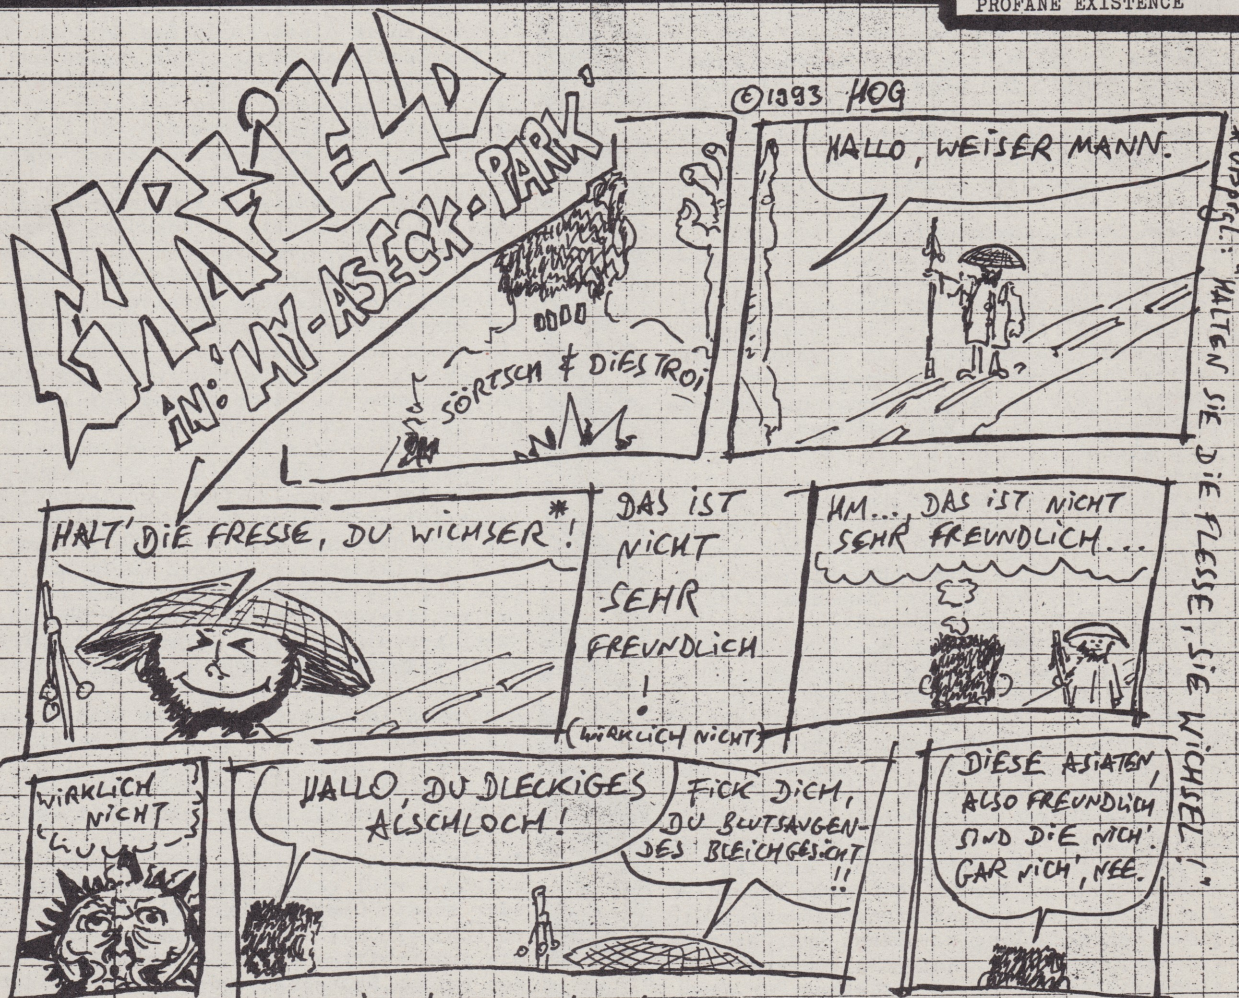 PROFANE EXISTENCE
GARFiELD
iN: MY-ASECK-PARK
©1993 HOG
SÖRTSCH & DiESTROi
HALLO, WEiSER MANN.
HALT' DiE FRESSE, DU WiCHSER*!
DAS iST
NiCHT
SEHR
FREUNDLiCH
!
(WiRKLiCH NiCHT)
HM..., DAS iST NiCHT
SEHR FREUNDLiCH...
"HALTEN SiE DiE FLESSE, SiE WiCHSEL!"
WiRKLiCH
NiCHT
HALLO, DU DLECKiGES
ALSCHLOCH!
FiCK DiCH,
DU BLUTSAUGEN-
DES BLEiCHGESiCHT
!!
DiESE ASiATEN,
ALSO FREUNDLiCH
SiND DiE NiCH'.
GAR NiCH', NEE.